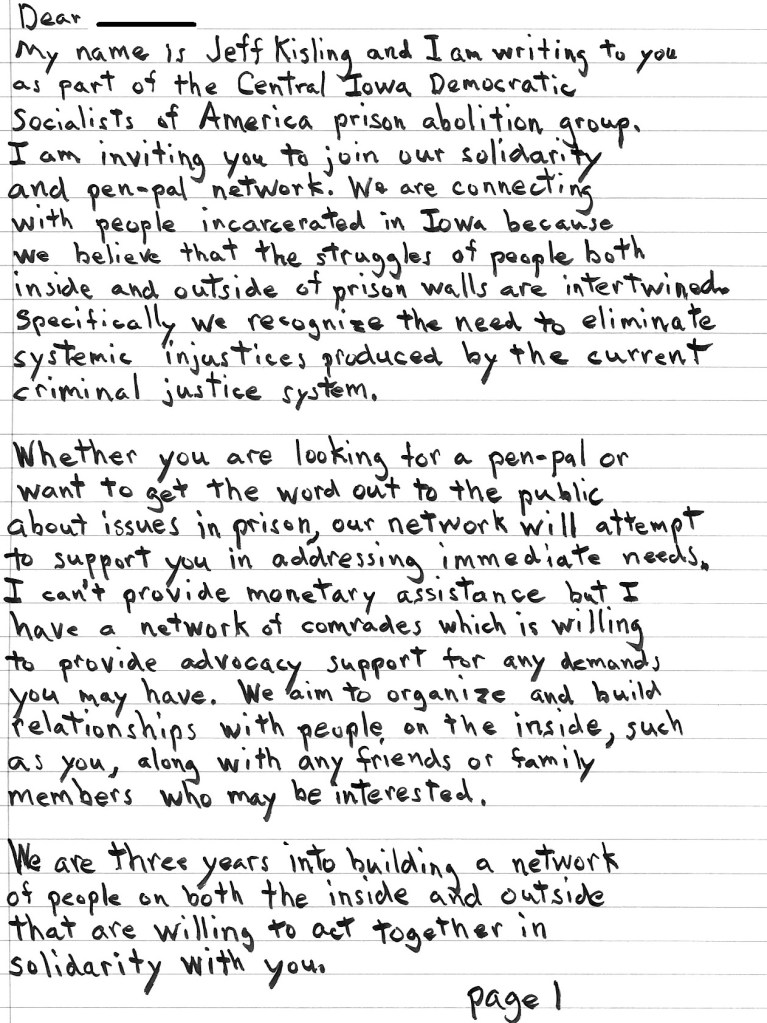 Dear
My name is Jeff Kisling and I am writing to you
as part of the Central Iowa Democratic
Socialists of America prison abolition group.
I am inviting you to join our solidarity
and pen-pal network. We are connecting
with people incarcerated in Iowa because
we believe that the struggles of people both
inside and outside of prison walls are intertwined.
Specifically we recognize the need to eliminate
systemic injustices produced by the current
criminal justice system.
Whether you are looking for a pen-pal or
want to get the word out to the public
about issues in prison, our network will attempt
to support you in addressing immediate needs.
I can't provide monetary assistance but I
have a network of comrades which is willing
to provide advocacy support for any demands
you may have. We aim to organize and build
relationships with people on the inside, such
as you, along with any friends or family
members who may be interested.
We are three years into building a network
of people on both the inside and outside
that are willing to act together in
solidarity with you.
page 1